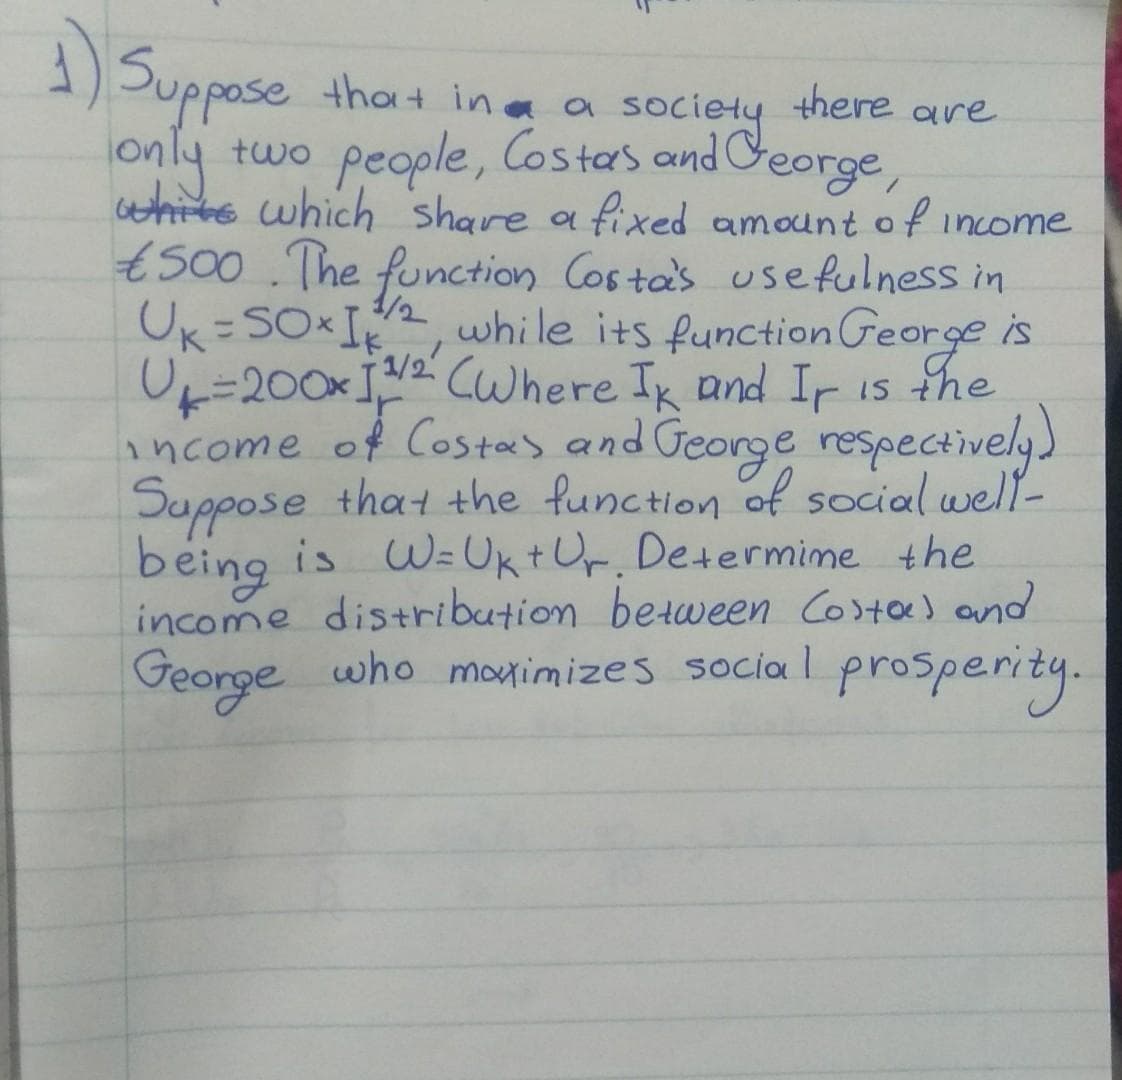 1) Suppose that in a society there are
only two people, Costas and George,
which share a fixed amount of income
€500. The function Costa's usefulness in
UK = 50×IK^1/2, while its function George is
Ur = 200×Ir^1/2 (Where IK and Ir is the
income of Costas and George respectively)
Suppose that the function of social well-
being is W=UK+Ur. Determime the
income distribution between Costas and
George who maximizes social prosperity.